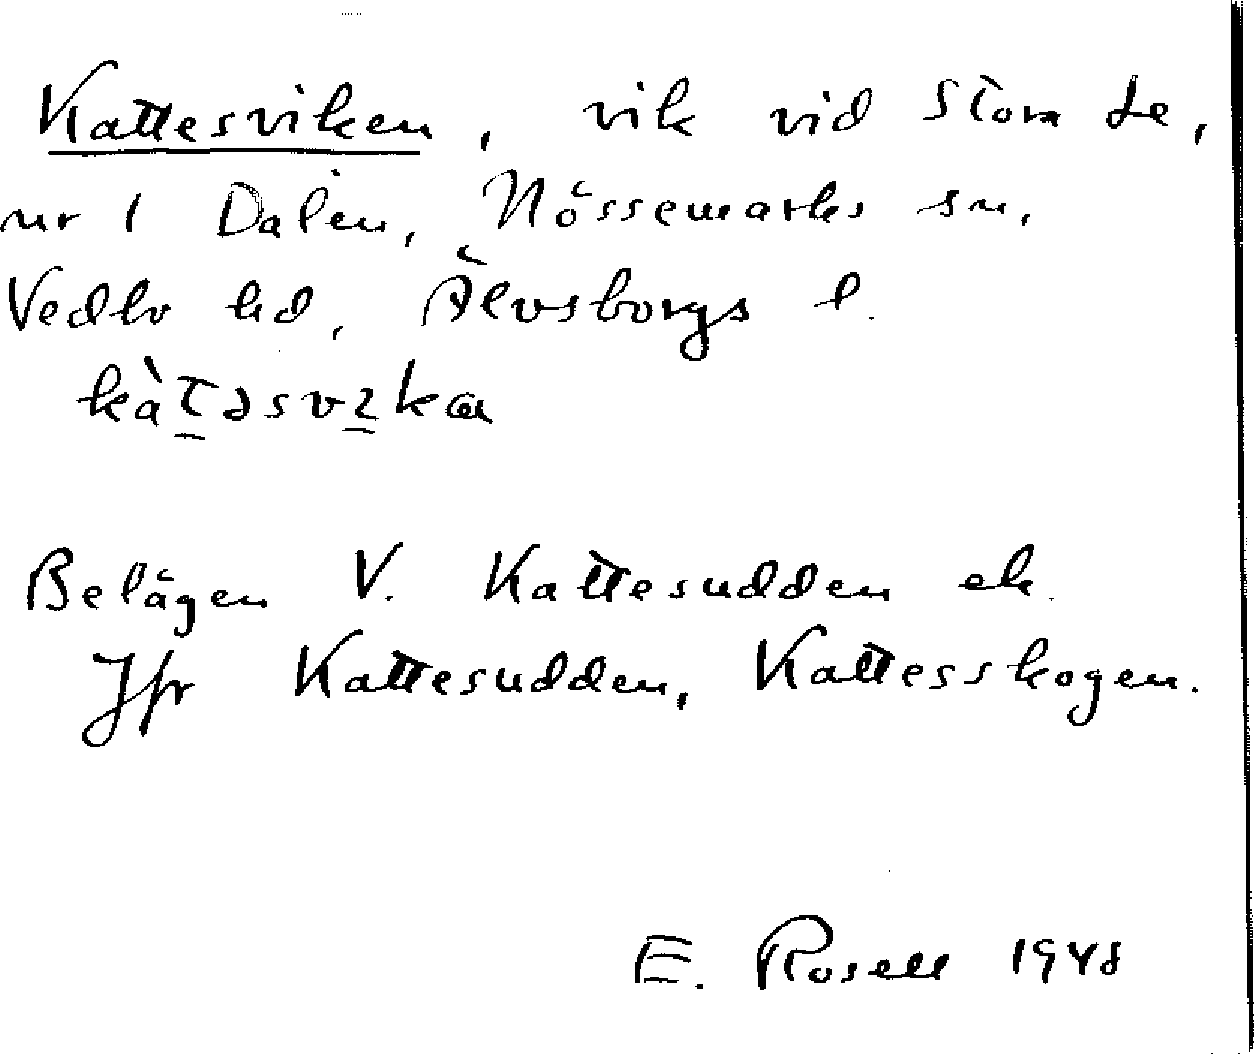 Kattesviken, vik vid Stora Le,
nr 1 Dalen, Nössemarks sn,
Vedbo hd, Älvsborgs l.
kàtəsvika
Belägen V. Kattesudden ek.
Jfr Kattesudden, Kattesskogen.
E. Rosell 1948